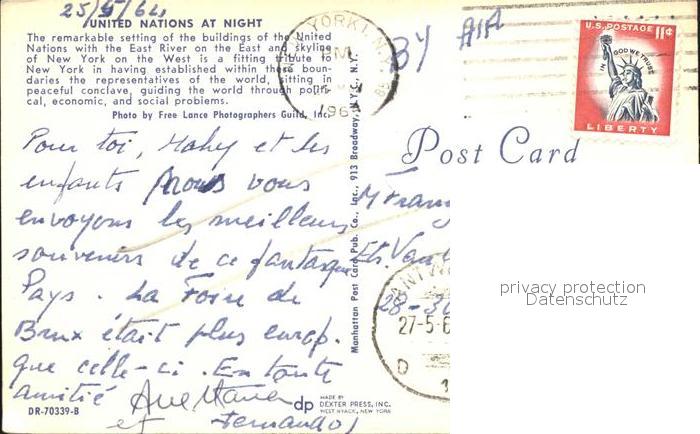 25/5/64
UNITED NATIONS AT NIGHT
The remarkable setting of the buildings of the United
Nations with the East River on the East and skyline
of New York on the West is a fitting tribute to
New York in having established within these boun-
daries the representatives of the world, sitting in
peaceful conclave, guiding the world through politi-
cal, economic, and social problems.
Photo by Free Lance Photographers Guild, Inc.
YORK, N.Y.
PM
196
BY AIR
U.S. POSTAGE 11¢
IN GOD WE TRUST
LIBERTY
Post Card
Pour toi, Mahy et les
enfants nous vous
envoyons les meilleurs
souvenirs de ce fantasque
Pays. La Foire de
Brux était plus europ.
que celle-ci. En toute
amitié
et Fernando
Manhattan Post Card Pub. Co., Inc., 913 Broadway, N.Y.C., N.Y.
M Franç
Ets. Van
28-30
ANTW
27-5-6
D
privacy protection
Datenschutz
DR-70339-B
dp
MADE BY
DEXTER PRESS, INC.
WEST NYACK, NEW YORK